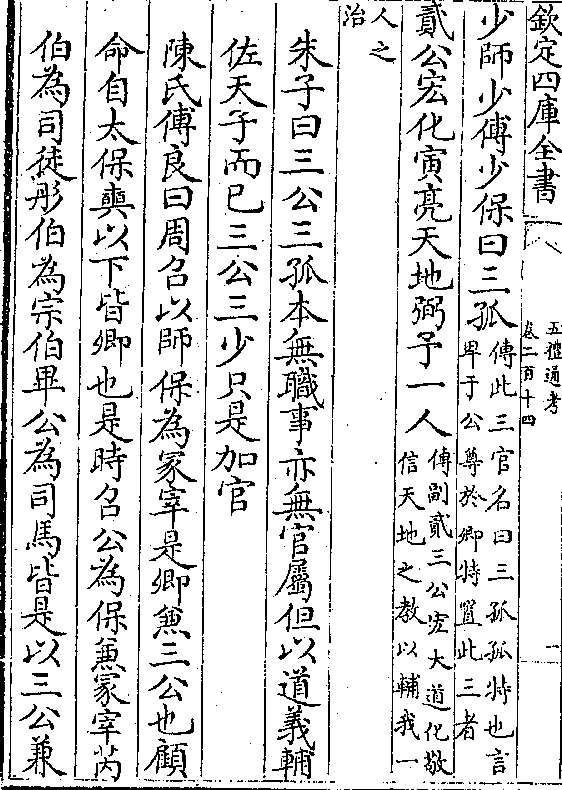 欽定四庫全書
五禮通考
卷二百十四
一
少師少傅少保曰三孤傳此三官名曰三孤孤特也言
卑于公尊於卿特置此三者
貳公宏化寅亮天地弼予一人傳副貳三公宏大道化敬
信天地之教以輔我一
人之
治
朱子曰三公三孤本無職事亦無官屬但以道義輔
佐天子而已三公三少只是加官
陳氏傅良曰周召以師保為冢宰是卿兼三公也顧
命自太保奭以下皆卿也是時召公為保兼冢宰芮
伯為司徒彤伯為宗伯畢公為司馬皆是以三公兼